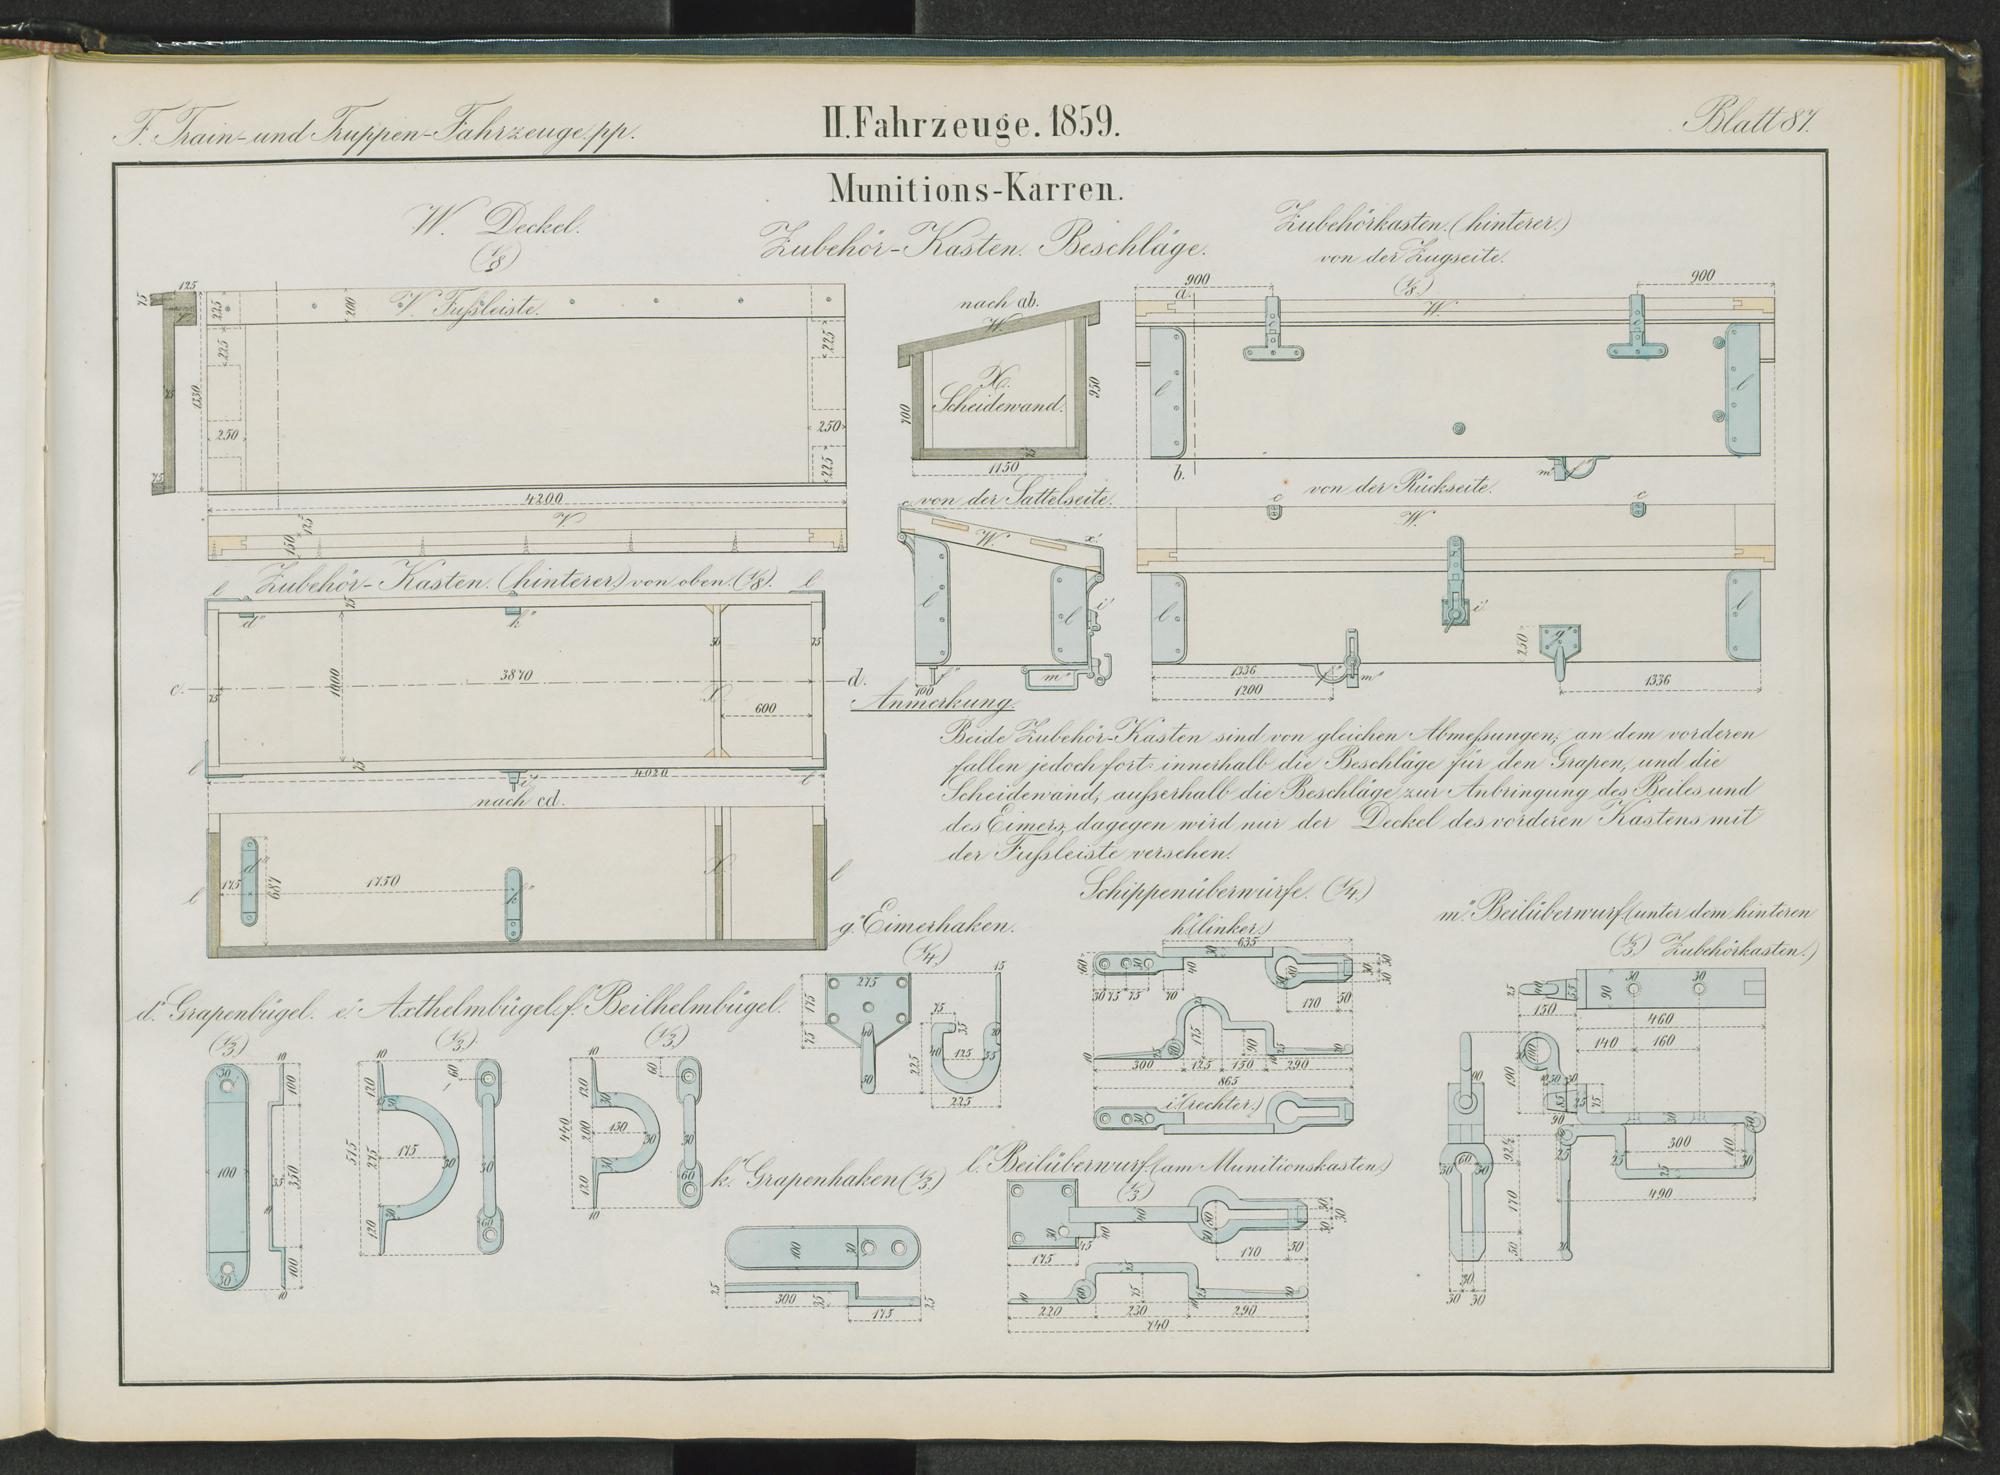 F. Train- und Truppen-Fahrzeuge pp.
II. Fahrzeuge. 1859.
Blatt 87.
Munitions-Karren.
Zubehör-Kasten. Beschläge.
W. Deckel.
(1/8)
V. Fußleiste.
75
125
225
200
225
225
1330
75
75
250
250
225
4200
125
150
nach ab.
W.
X.
Scheidewand.
700
950
75
1150
Zubehörkasten. (hinterer.)
von der Zugseite.
(1/8.)
900
900
a.
W.
l
l
b.
m"
von der Sattelseite.
c
W.
x'
l
l
i'
100
f"
m"
von der Rückseite.
c
c
W.
l
l
i'
g"
250
1336
1200
m"
1336
Zubehör-Kasten. (hinterer) von oben. (1/8).
l
l
d"
k"
75
50
75
c.
75
1000
3870
d.
X
600
l
75
i'
4020
l
nach cd.
d"
175
687
1750
k"
X
l
l
Anmerkung.
Beide Zubehör-Kasten sind von gleichen Abmeßungen; an dem vorderen
fallen jedoch fort: innerhalb die Beschläge für den Grapen, und die
Scheidewand, außerhalb die Beschläge zur Anbringung des Beiles und
des Eimers; dagegen wird nur der Deckel des vorderen Kastens mit
der Fußleiste versehen.
d". Grapenbügel.
(1/3)
30
100
30
10
100
350
35
10
100
10
e". Axthelmbügel.
(1/3.)
10
120
60
30
515
275
175
30
30
30
120
60
f". Beilhelmbügel.
(1/3.)
10
120
60
30
440
200
130
30
30
30
120
60
10
g". Eimerhaken.
(1/4.)
275
175
75
40
50
15
75
25
20
40
125
35
225
225
Schippenüberwürfe. (1/4.)
h" (linker.)
635
60
30
30
40
30 75 75
70
30
80
30
50
30
170
50
175
90
10
25
300
125
150
290
865
i" (rechter.)
k". Grapenhaken (1/3.)
100
30
25
300
35
175
25
l". Beilüberwurf. (am Munitionskasten)
(1/3)
30
175
45
40
40
80
30
30
30
30
170
50
25
10
60
75
25
20
220
230
290
740
m". Beilüberwurf. (unter dem hinteren
(1/3) Zubehörkasten.)
25
40
55
90
30
30
150
460
140
160
190
85
25
75
30
90
300
110
30
25
25
490
60
30
30
92½
170
50
20
30
30
30